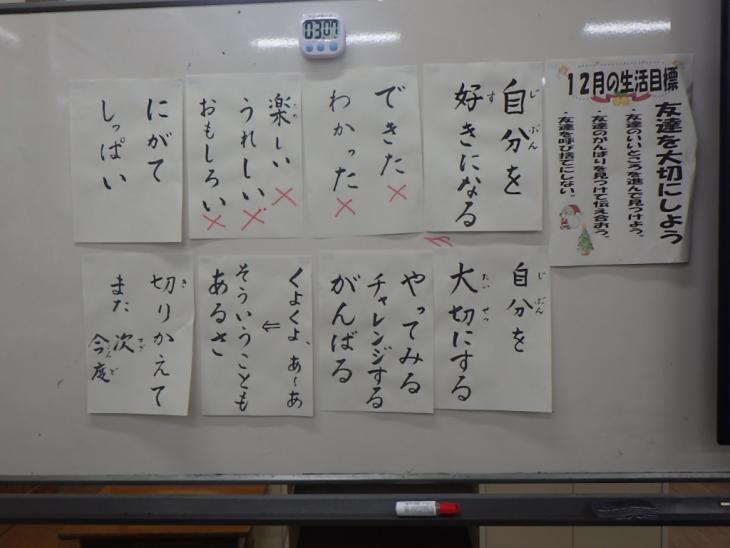 0307
12月の生活目標
友達を大切にしよう
・友達のいいところを進んで見つけよう。
・友達のがんばりを見つけて伝え合おう。
・友達を呼び捨てにしない。
自分を
じぶん
好きになる
す
できた×
わかった×
楽しい×
たの
うれしい×
おもしろい×
にがて
しっぱい
自分を
じぶん
大切にする
たいせつ
やってみる
チャレンジする
がんばる
くよくよ、あ〜あ
⇐
そういうことも
あるさ
切りかえて
き
また 次
つぎ
今度
こんど